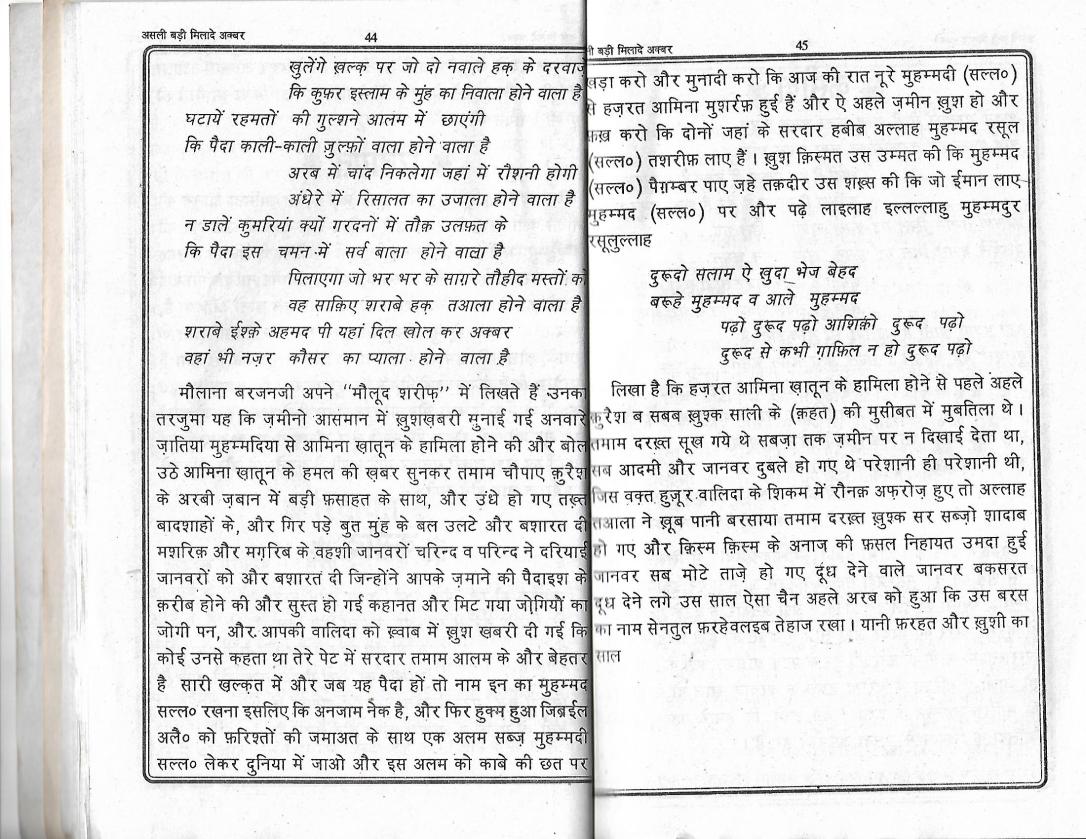 असली बड़ी मिलादे अक्बर 44
खुलेंगे ख़ल्क़ पर जो दो नवाले हक़ के दरवाज़े
कि कुफ़र इस्लाम के मुंह का निवाला होने वाला है
घटायें रहमतों की गुल्शने आलम में छाएंगी
कि पैदा काली-काली ज़ुल्फ़ों वाला होने वाला है
अरब में चांद निकलेगा जहां में रौशनी होगी
अंधेरे में रिसालत का उजाला होने वाला है
न डालें कुमरियां क्यों गरदनों में तौक़ उलफ़त के
कि पैदा इस चमन में सर्व बाला होने वाला है
पिलाएगा जो भर भर के साग़रे तौहीद मस्तों को
वह साक़िए शराबे हक़ तआला होने वाला है
शराबे ईश्क़े अहमद पी यहां दिल खोल कर अक्बर
वहां भी नज़र कौसर का प्याला होने वाला है
मौलाना बरजनजी अपने “मौलूद शरीफ़” में लिखते हैं उनका
तरजुमा यह कि ज़मीनो आसमान में ख़ुशख़बरी सुनाई गई अनवारे
ज़ातिया मुहम्मदिया से आमिना ख़ातून के हामिला होने की और बोल
उठे आमिना ख़ातून के हमल की ख़बर सुनकर तमाम चौपाए क़ुरैश
के अरबी ज़बान में बड़ी फ़साहत के साथ, और उंधे हो गए तख़्त
बादशाहों के, और गिर पड़े बुत मुंह के बल उलटे और बशारत दी
मशरिक़ और मग़रिब के वहशी जानवरों चरिन्द व परिन्द ने दरियाई
जानवरों को और बशारत दी जिन्होंने आपके ज़माने की पैदाइश के
क़रीब होने की और सुस्त हो गई कहानत और मिट गया जोगियों का
जोगी पन, और आपकी वालिदा को ख़्वाब में ख़ुश ख़बरी दी गई कि
कोई उनसे कहता था तेरे पेट में सरदार तमाम आलम के और बेहतर
है सारी ख़ल्क़त में और जब यह पैदा हों तो नाम इन का मुहम्मद
सल्ल० रखना इसलिए कि अनजाम नेक है, और फिर हुक्म हुआ जिब्रईल
अलै० को फ़रिश्तों की जमाअत के साथ एक अलम सब्ज़ मुहम्मदी
सल्ल० लेकर दुनिया में जाओ और इस अलम को काबे की छत पर
बड़ी मिलादे अक्बर 45
खड़ा करो और मुनादी करो कि आज की रात नूरे मुहम्मदी (सल्ल०)
से हज़रत आमिना मुशर्रफ़ हुई हैं और ऐ अहले ज़मीन ख़ुश हो और
फ़ख़्र करो कि दोनों जहां के सरदार हबीब अल्लाह मुहम्मद रसूल
(सल्ल०) तशरीफ़ लाए हैं। ख़ुश क़िस्मत उस उम्मत की कि मुहम्मद
(सल्ल०) पैग़म्बर पाए ज़हे तक़दीर उस शख़्स की कि जो ईमान लाए
मुहम्मद (सल्ल०) पर और पढ़े लाइलाह इल्लल्लाहु मुहम्मदुर
रसूलुल्लाह
दुरूदो सलाम ऐ खुदा भेज बेहद
बरूहे मुहम्मद व आले मुहम्मद
पढ़ो दुरूद पढ़ो आशिक़ो दुरूद पढ़ो
दुरूद से कभी ग़ाफ़िल न हो दुरूद पढ़ो
लिखा है कि हज़रत आमिना ख़ातून के हामिला होने से पहले अहले
क़ुरैश ब सबब ख़ुश्क साली के (क़हत) की मुसीबत में मुबतिला थे।
तमाम दरख़्त सूख गये थे सबज़ा तक ज़मीन पर न दिखाई देता था,
सब आदमी और जानवर दुबले हो गए थे परेशानी ही परेशानी थी,
जिस वक़्त हुज़ूर वालिदा के शिकम में रौनक़ अफ़रोज़ हुए तो अल्लाह
तआला ने ख़ूब पानी बरसाया तमाम दरख़्त ख़ुश्क सर सब्ज़ो शादाब
हो गए और क़िस्म क़िस्म के अनाज की फ़सल निहायत उमदा हुई
जानवर सब मोटे ताज़े हो गए दूध देने वाले जानवर बकसरत
दूध देने लगे उस साल ऐसा चैन अहले अरब को हुआ कि उस बरस
का नाम सेनतुल फ़रहेवलइब तेहाज रखा। यानी फ़रहत और ख़ुशी का
साल